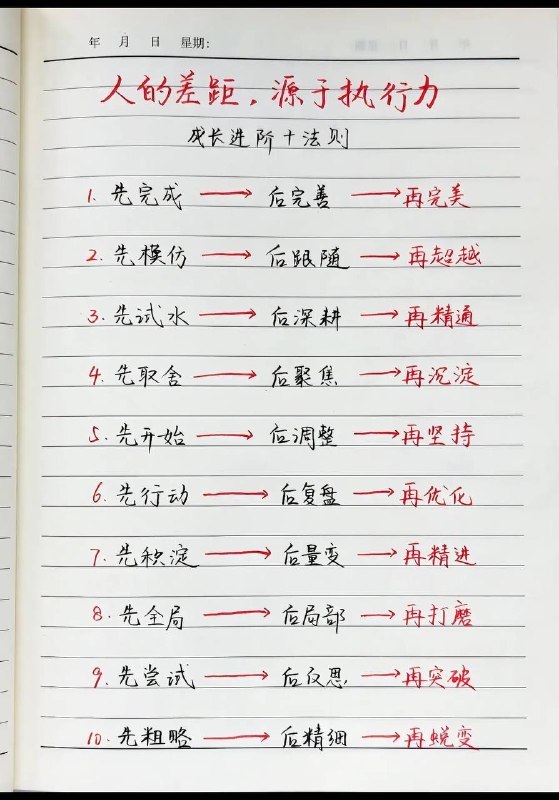 年 月 日 星期:
人的差距，源于执行力
成长进阶十法则
1. 先完成 → 后完善 → 再完美
2. 先模仿 → 后跟随 → 再超越
3. 先试水 → 后深耕 → 再精通
4. 先取舍 → 后聚焦 → 再沉淀
5. 先开始 → 后调整 → 再坚持
6. 先行动 → 后复盘 → 再优化
7. 先积淀 → 后量变 → 再精进
8. 先全局 → 后局部 → 再打磨
9. 先尝试 → 后反思 → 再突破
10. 先粗略 → 后精细 → 再蜕变